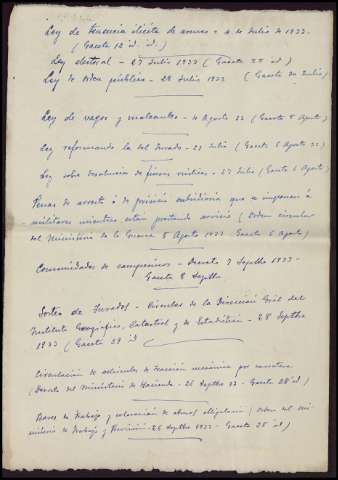 Ley de tenencia ilícita de armas - 4 de Julio de 1933.
(Gaceta 12 id. id.)
Ley electoral - 27 Julio 1933 (Gaceta 28 id)
Ley de orden público - 28 Julio 1933 (Gaceta 30 Julio)
Ley de vagos y maleantes - 4 Agosto 33 (Gaceta 5 Agosto)
Ley reformando la del Jurado - 27 Julio (Gaceta 5 Agosto 33)
Ley sobre devolución de fincas rústicas - 27 Julio (Gaceta 6 Agosto)
Penas de arresto ó de prisión subsidiaria que se imponen á
militares mientras están prestando servicio (Orden circular
del Ministerio de la Guerra 5 Agosto 1933 Gaceta 6 Agosto)
Comunidades de campesinos - Decreto 7 Sepbre 1933 -
Gaceta 8 Sepbre
Sorteo de Jurados - Circular de la Dirección Gral del
Instituto Geográfico, Catastral y de Estadística - 28 Septbre
1933 (Gaceta 29 id
Circulación de vehículos de tracción mecánica por carretera
(Decreto del Ministerio de Hacienda - 26 Sepbre 33 - Gaceta 28 id)
Bases de trabajo y colocación de obreros obligatoria (Orden del Mi-
nisterio de Trabajo y Previsión - 26 Sepbre 1933 - Gaceta 28 id)